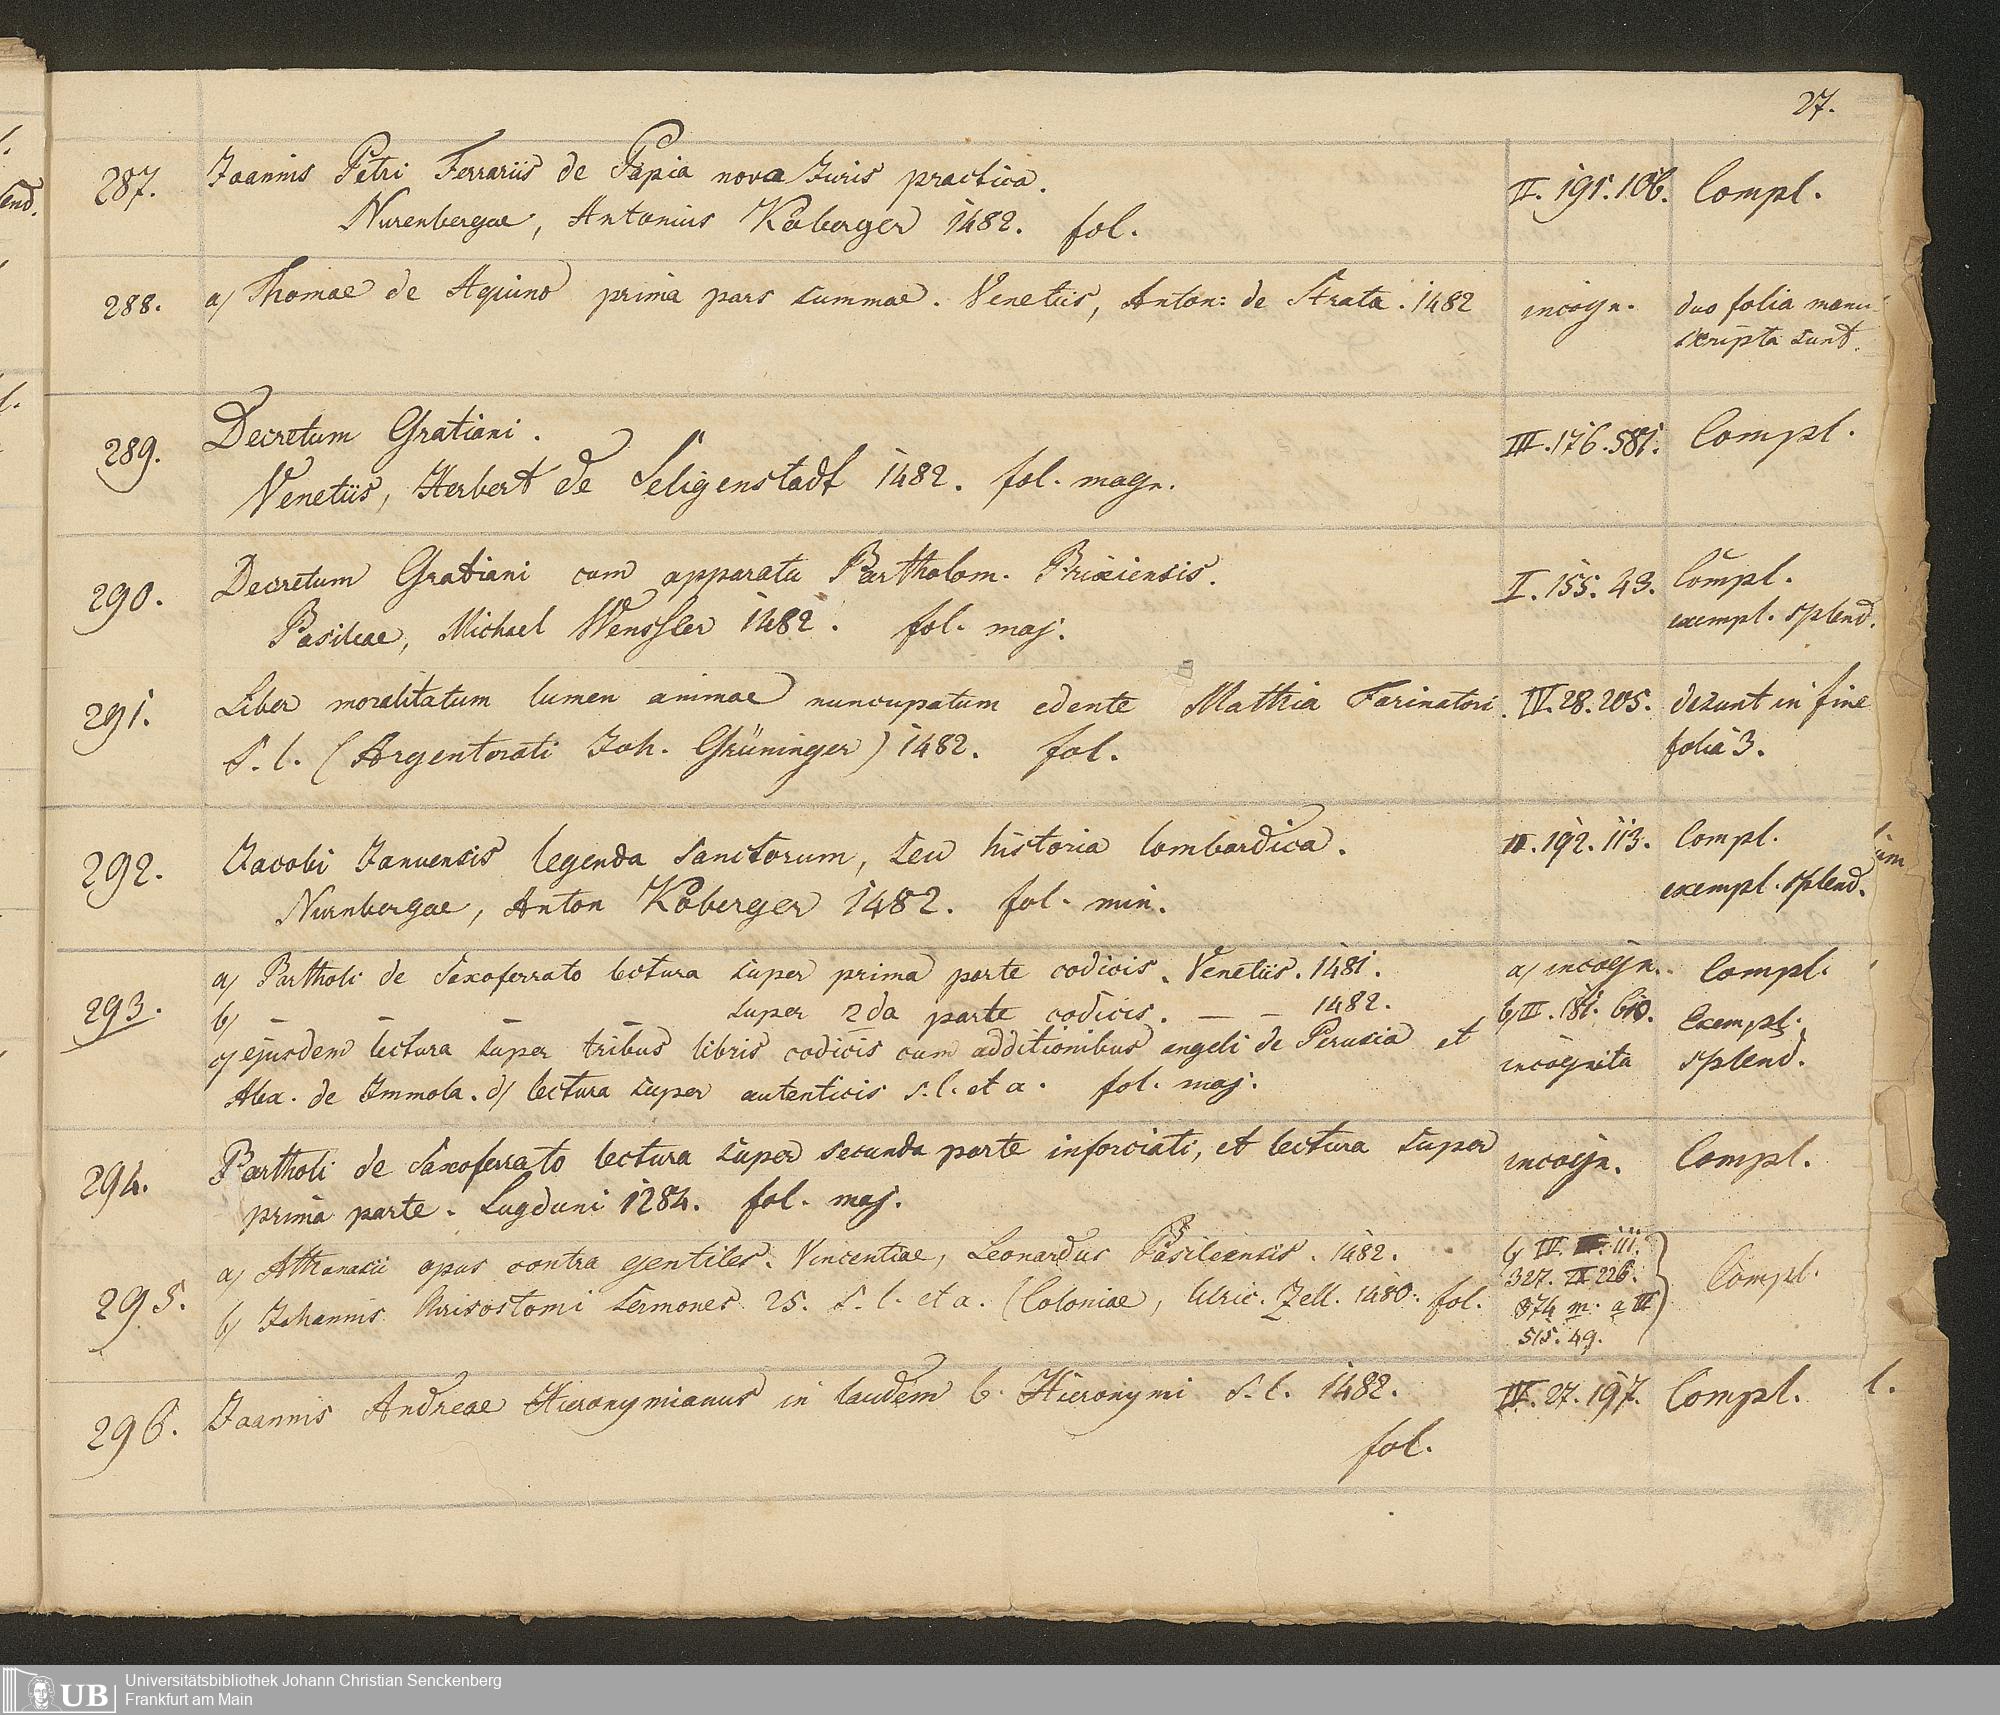 27.
287. Joannis Petri Ferrariis de Papia nova Juris practica. II. 191. 106. Compl.
Nurenbergae, Antonius Koberger 1482. fol.
288. a) Thomae de Aquino prima pars summae. Venetiis, Anton: de Strata. 1482 incogn. duo folia manu-
scripta sunt.
289. Decretum Gratiani. III. 176. 581. Compl.
Venetiis, Herbert de Seligenstadt 1482. fol. magn.
290. Decretum Gratiani cum apparatu Bartholom. Brixiensis. I. 155. 43. Compl.
Basileae, Michael Wenssler 1482. fol. maj. exempl. splend.
291. Liber moralitatum lumen animae nuncupatum edente Matthia Farinatori. IV. 28. 205. desunt in fine
S. l. (Argentorati Joh. Grüninger) 1482. fol. folia 3.
292. Jacobi Januensis legenda sanctorum, seu historia lombardica. II. 192. 113. Compl.
Nurnbergae, Anton Koberger 1482. fol. min. exempl. splend.
293. a) Bartholi de Saxoferrato lectura super prima parte codicis. Venetiis. 1481. a) incogn. Compl.
b) — — — super 2da parte codicis. — — 1482. b) III. 181. 610. Exempl.
c) ejusdem lectura super tribus libris codicis cum additionibus angeli de Perusia et incognita splend.
Alex. de Immola. d) lectura super autenticis s. l. et a. fol. maj.
294. Bartholi de Saxoferrato lectura super secunda parte inforciati, et lectura super incogn. Compl.
prima parte. Lugduni 1284. fol. maj.
295. a) Athanasii opus contra gentiles. Vincentiae, Leonardus Basileensis. 1482. b) IV. 111. Compl.
b) Johannis Crisostomi sermones 25. S. l. et a. (Coloniae, Ulric. Zell. 1480. fol. 327. IX 226.
374 m. a III
515. 49.
296. Joannis Andreae Hieronymianus in laudem b. Hieronymi S. l. 1482. IV. 27. 197. Compl.
fol.
UB Universitätsbibliothek Johann Christian Senckenberg
Frankfurt am Main